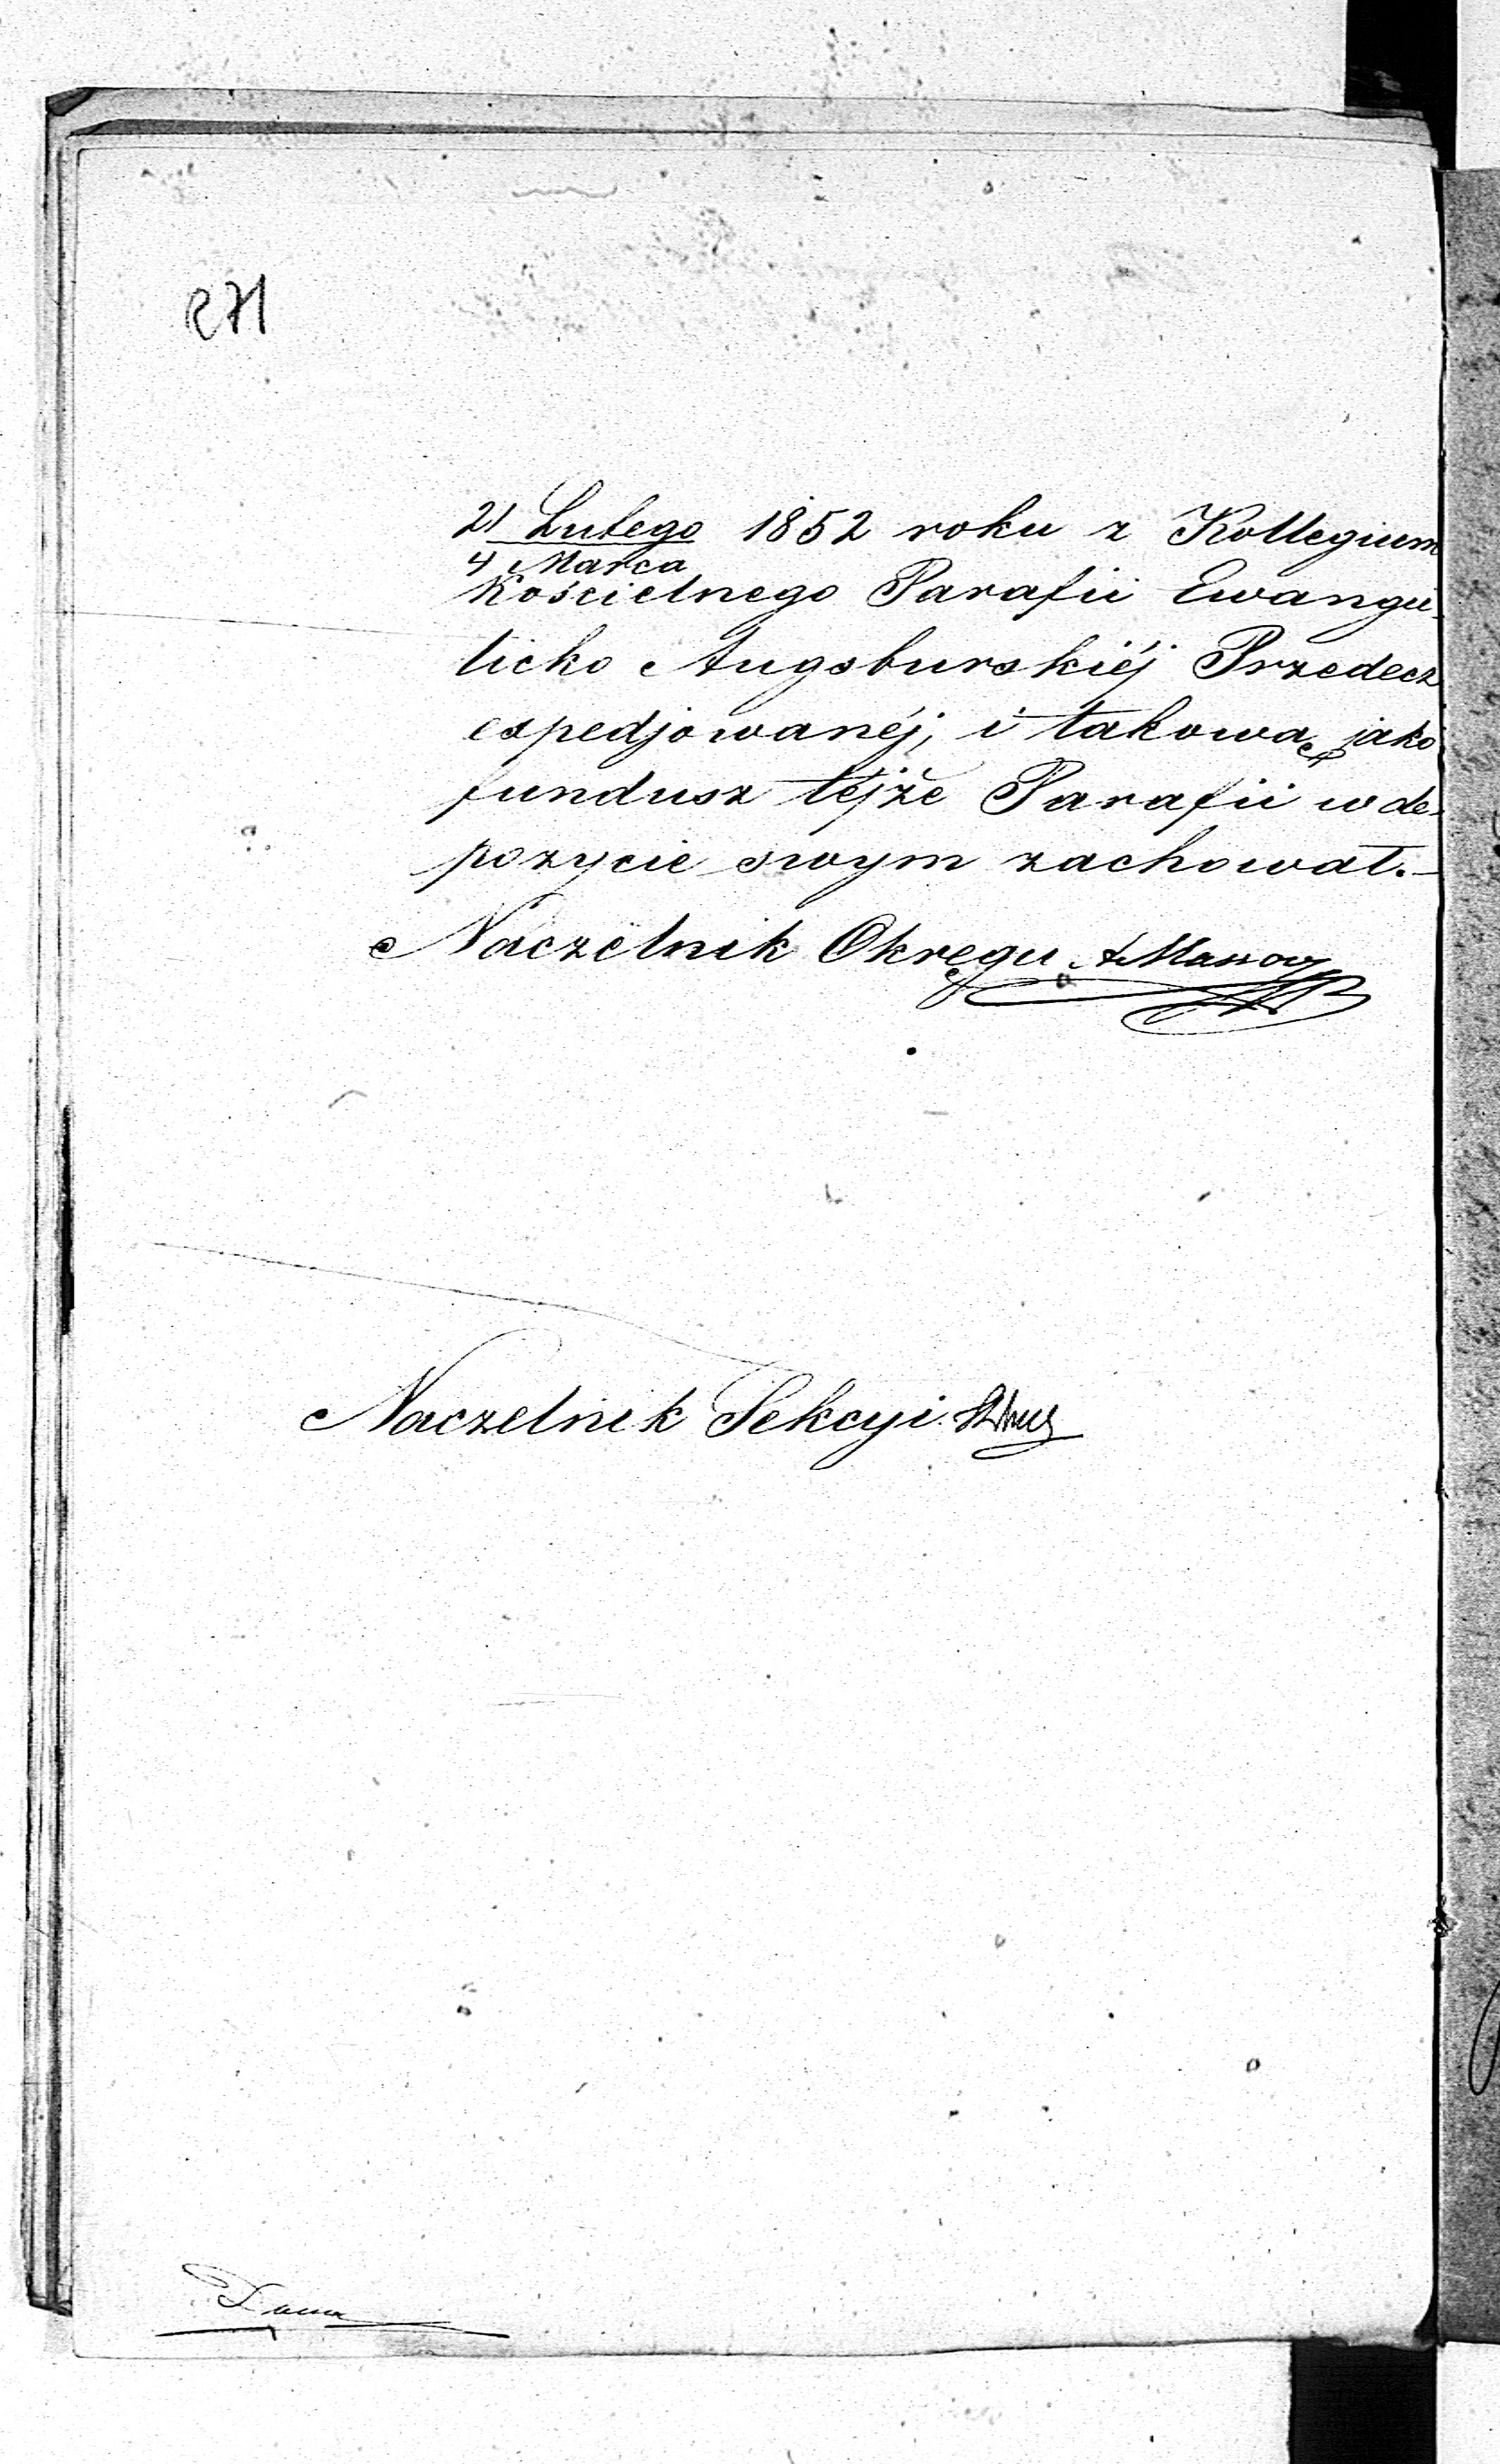 271
21 Lutego 1852 roku z Kollegium
4 Marca
Kościelnego Parafii Ewangie-
licko Augsburskiéj Przedecz
expedjowanéj, i takową jako
fundusz téjże Parafii w de-
pozycie swym zachował.-
Naczelnik Okręgu
Naczelnik Sekcyi